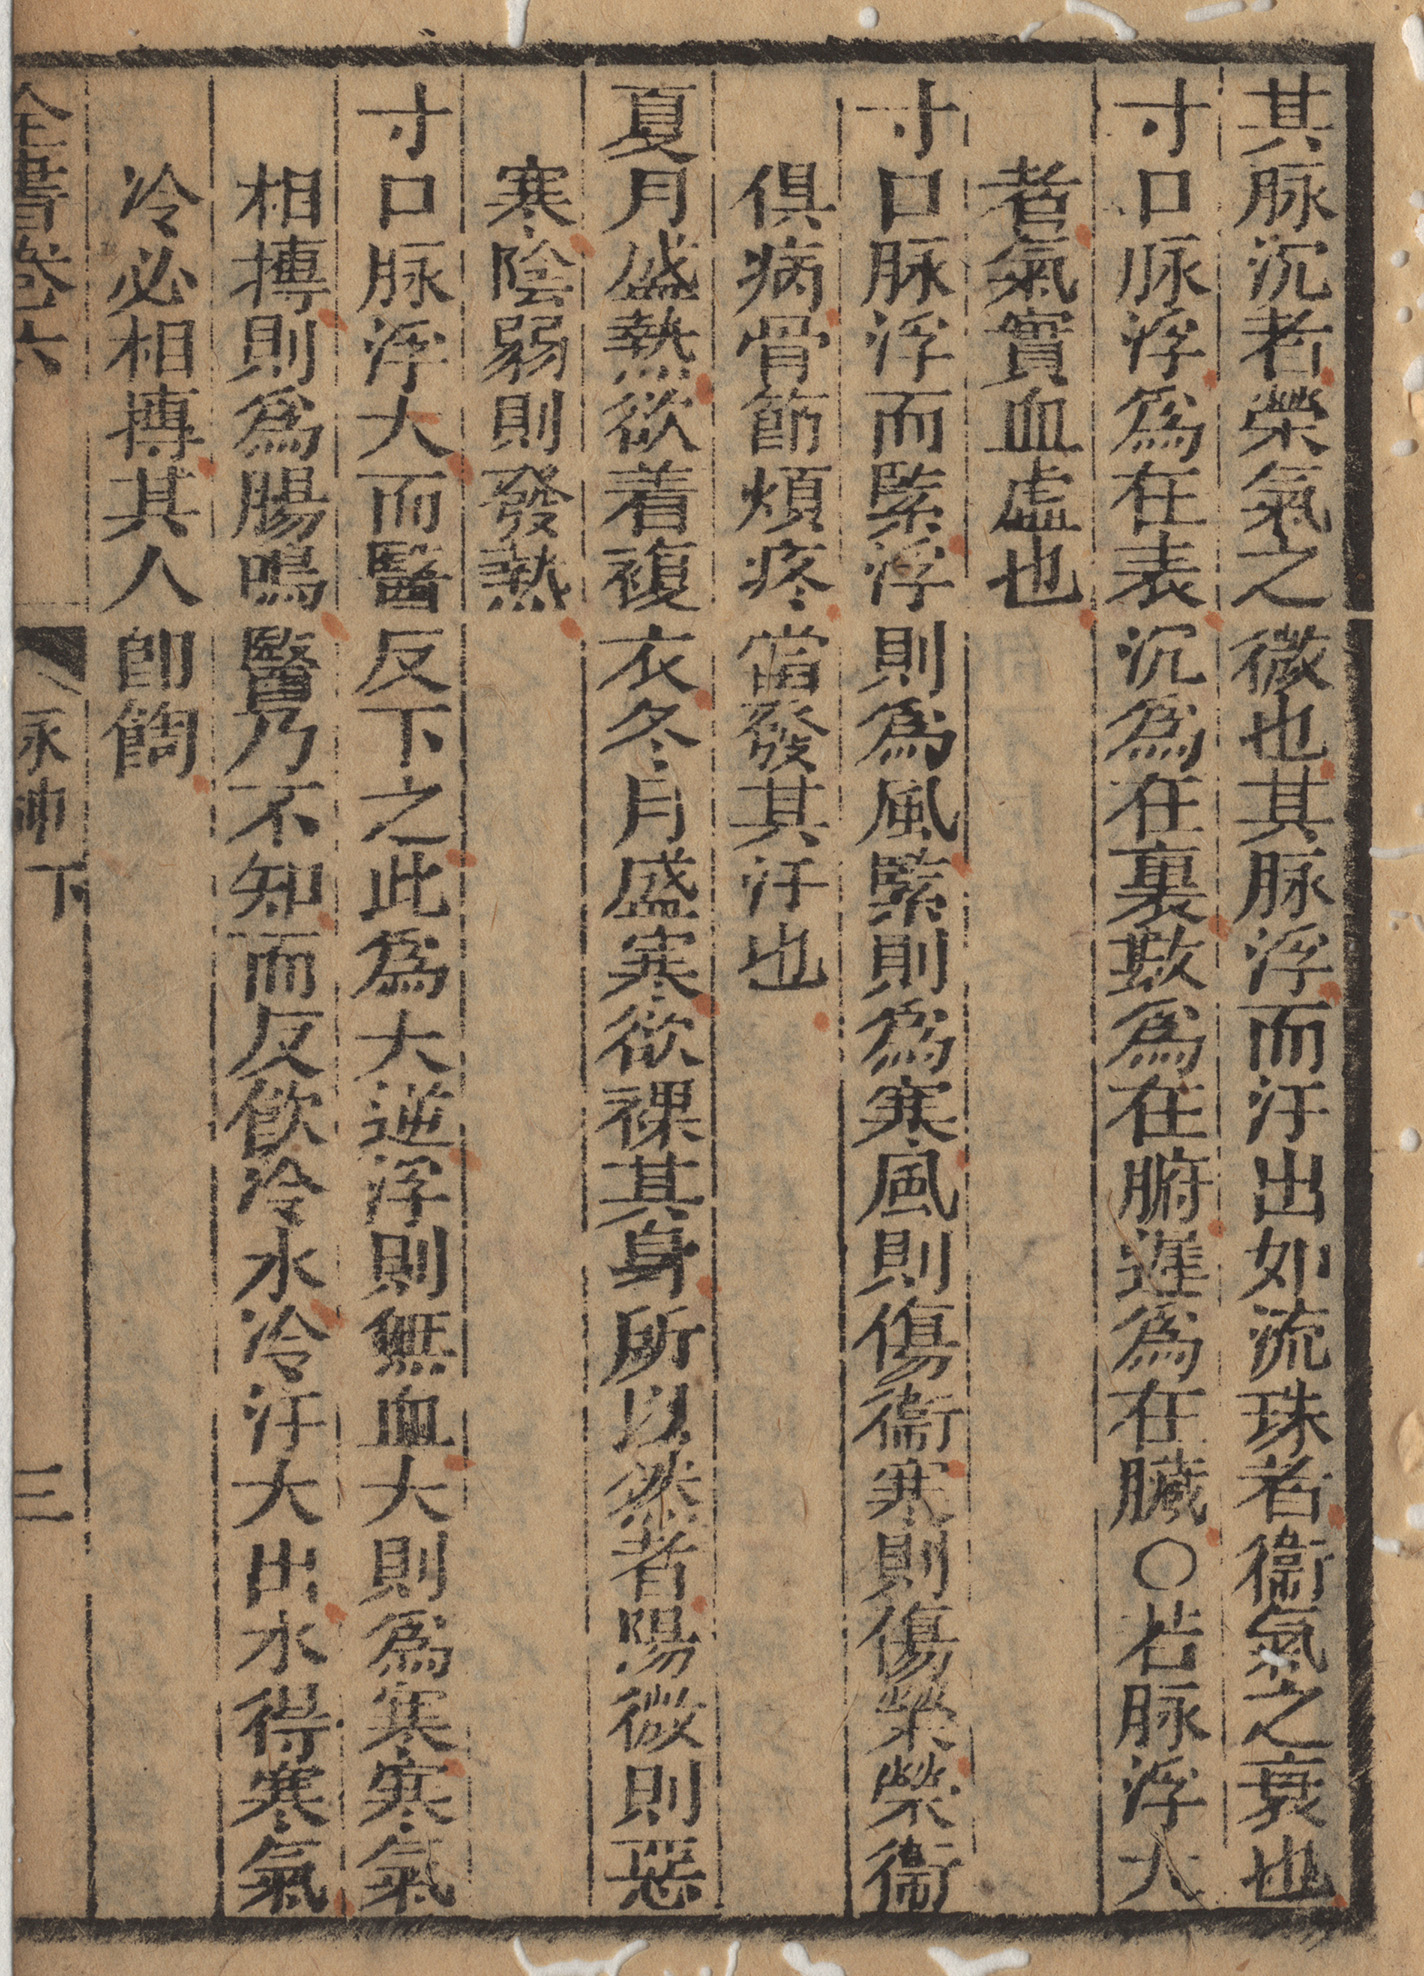 其脉沉者榮氣之微也其脉浮而汗出如流珠者衞氣之衰也
寸口脉浮爲在表沉爲在裏數爲在腑遲爲在臓○若脉浮大
者氣實血虛也
寸口脉浮而緊浮則爲風緊則爲寒風則傷衞寒則傷榮榮衞
俱病骨節煩疼當發其汗也
夏月盛熱欲着複衣冬月盛寒欲裸其身所以然者陽微則惡
寒陰弱則發熱
寸口脉浮大而醫反下之此爲大逆浮則無血大則爲寒寒氣
相摶則爲腸鳴醫乃不知而反飲冷水冷汗大出水得寒氣
冷必相摶其人卽餶
全書卷六 脉神下 三